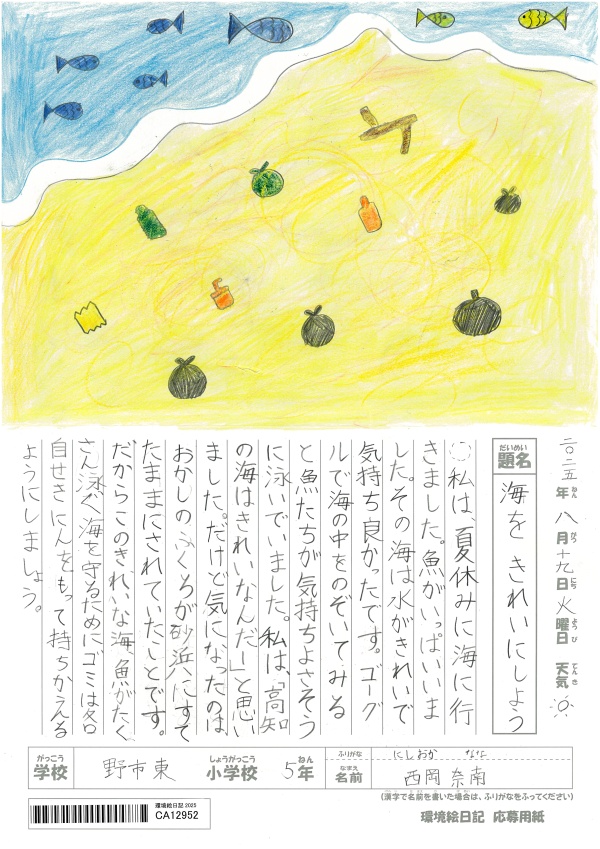 二〇二五年ねん八月がつ十九日にち火曜日ようび 天気てんき
題名だいめい 海を きれいにしよう
私は、夏休みに海に行
きました。魚がいっぱいいま
した。その海は水がきれいで
気持ち良かったです。ゴーグ
ルで海の中をのぞいてみる
と魚たちが気持ちよさそう
に泳いでいました。私は、「高知
の海はきれいなんだー」と思い
ました。だけど気になったのは、
おかしのふくろが砂浜にすて
たままにされていたことです。
だからこのきれいな海、魚がたく
さん泳ぐ海を守るためにゴミは各
自せきにんをもって持ちかえる
ようにしましょう。
学校がっこう 野市東 小学校しょうがっこう 5年ねん
ふりがな にしおか なな
名前なまえ 西岡 奈南
(漢字で名前を書いた場合は、ふりがなをふってください)
環境絵日記 2025
CA12952
環境絵日記 応募用紙